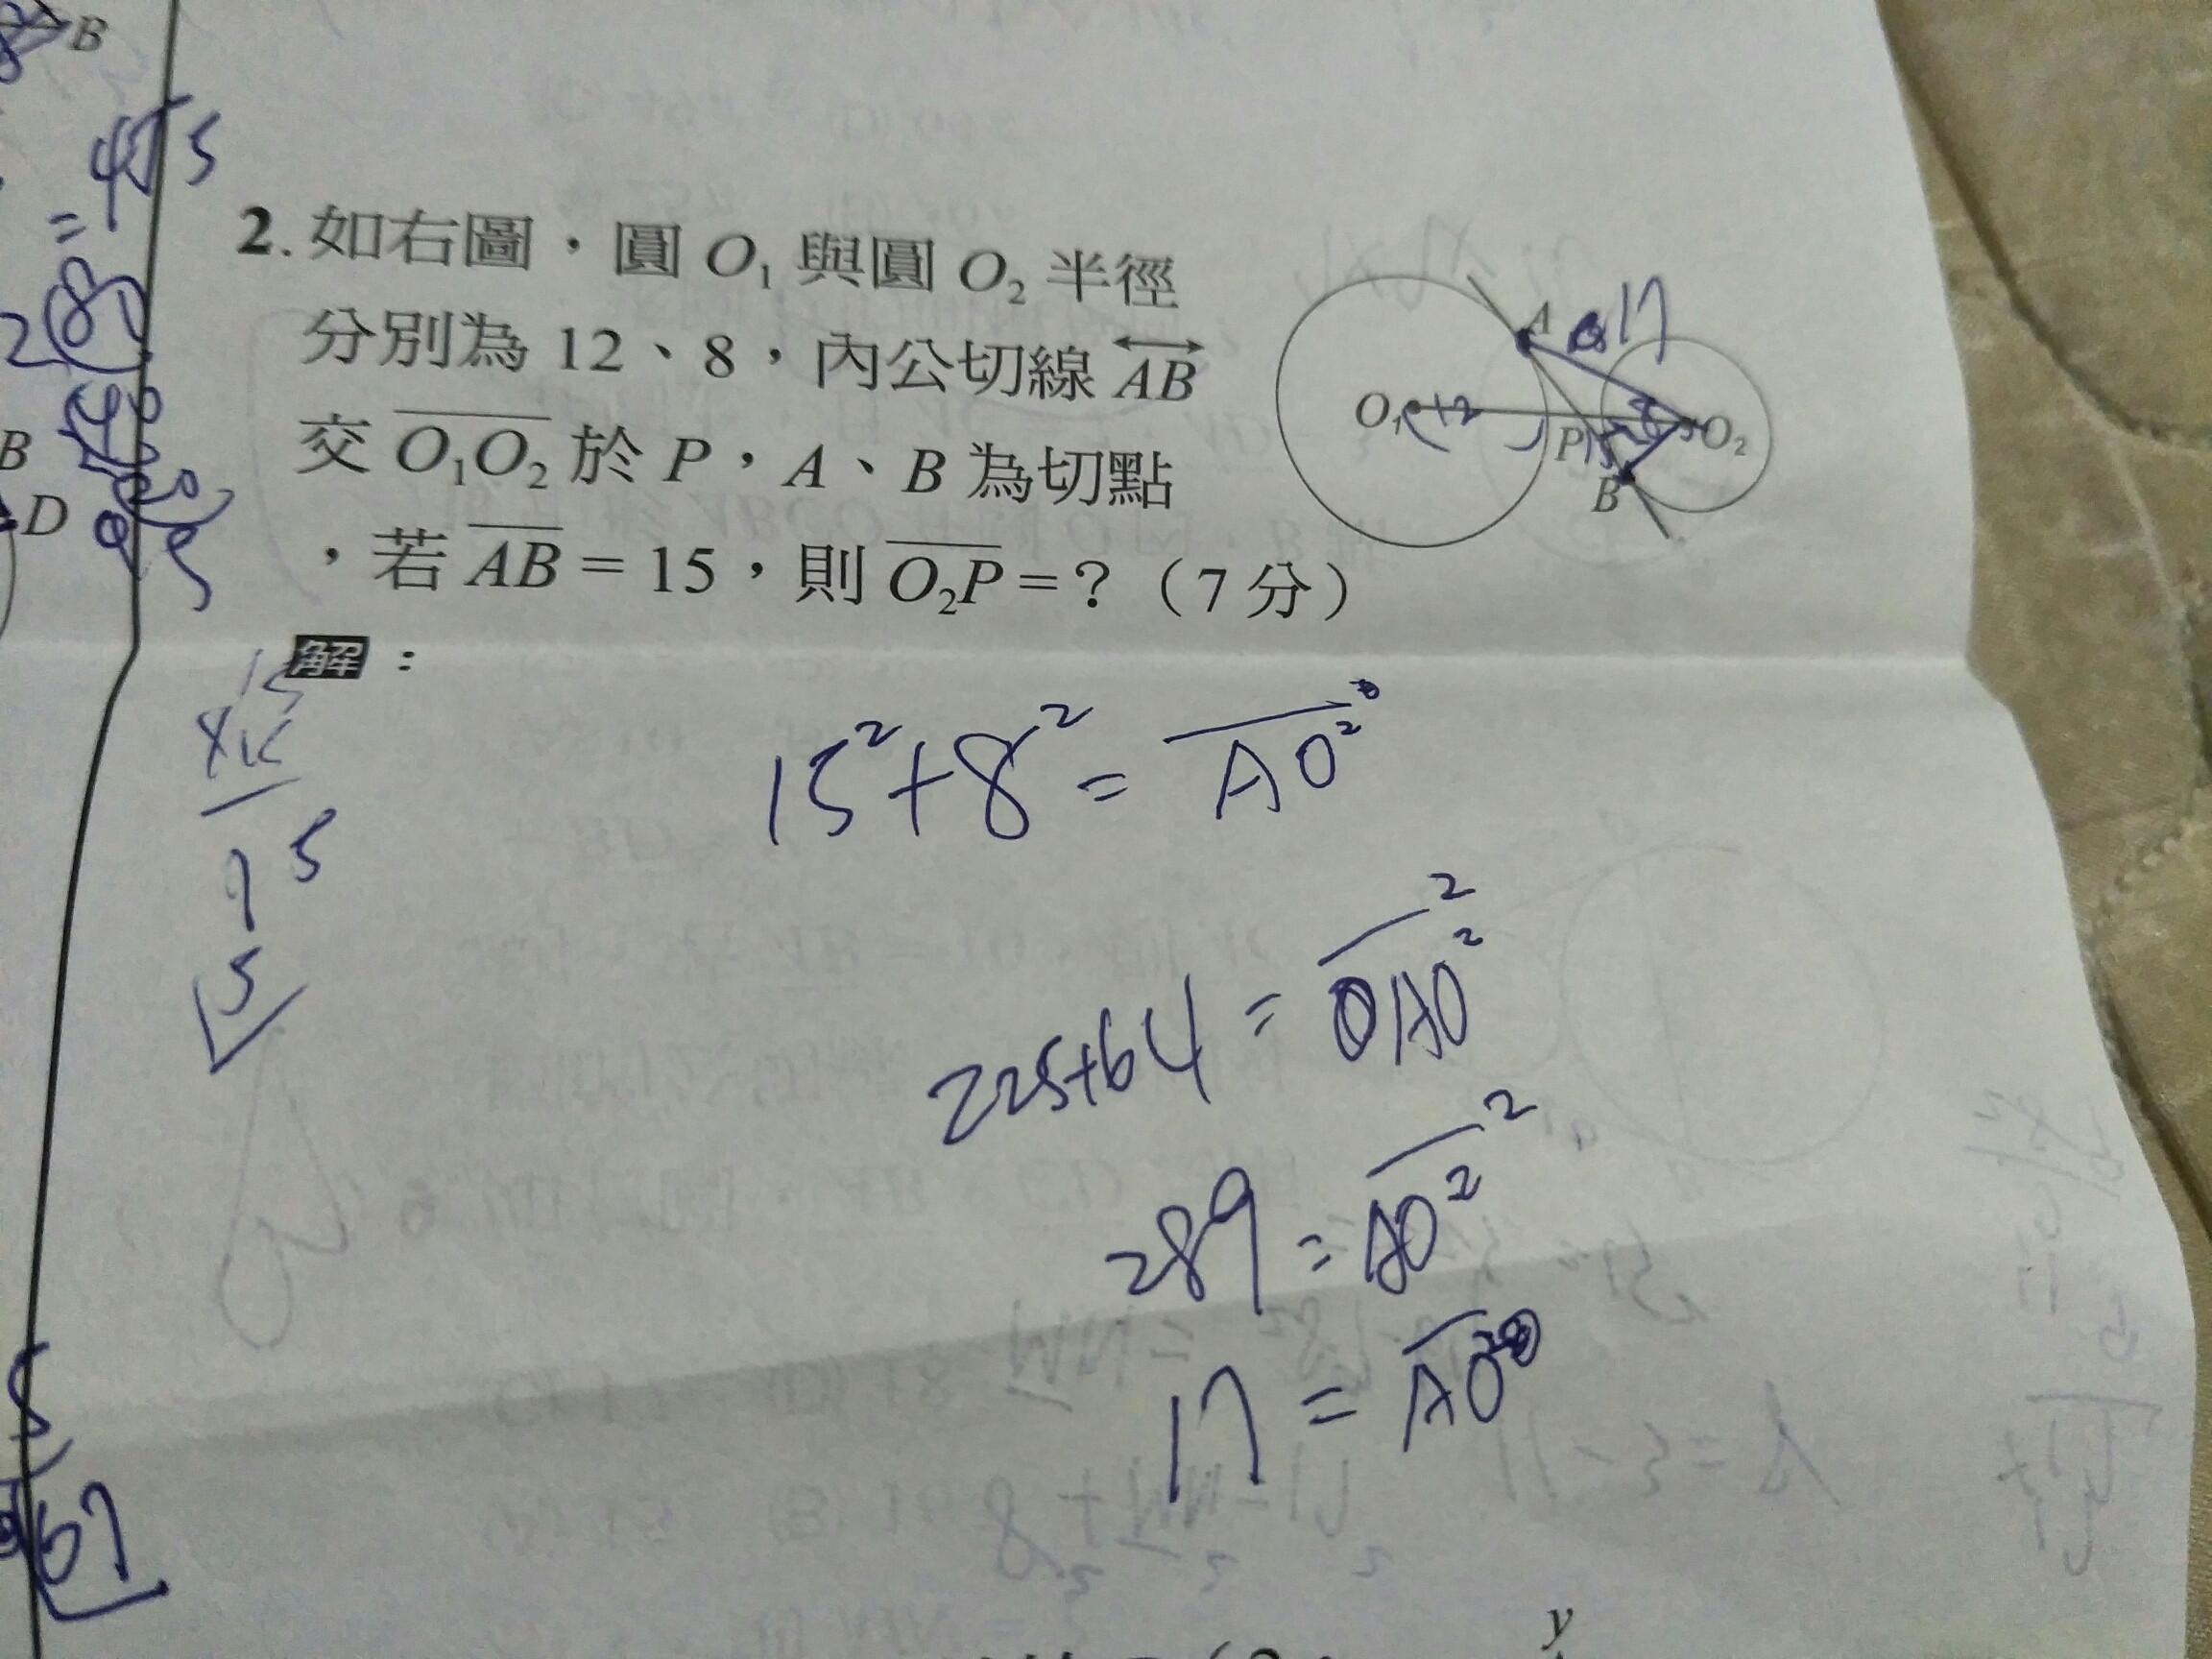 B
= 4√5
28
B
D
2. 如右圖，圓 O₁ 與圓 O₂ 半徑
分別為 12、8，內公切線 AB
交 O₁O₂ 於 P，A、B 為切點
，若 AB = 15，則 O₂P = ?（7 分）
A 17
O₁ 12 P 15 8 O₂
B
解：
15
75
5
15² + 8² = AO₂²
225+64 = AO₂²
289 = AO₂²
17 = AO₂
5
67
y